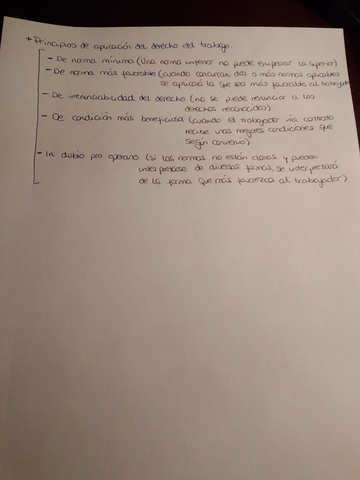 * Principios de aplicación del derecho del trabajo.
- De norma mínima (Una norma inferior no puede empeorar la superior)
- De norma más favorable (cuando concurran dos o más normas aplicables
se aplicará la que sea más favorable al trabajador
- De irrenunciabilidad del derecho (no se puede renunciar a los
derechos reconocidos)
- De condición más beneficiosa (cuando el trabajador vía contrato
recibe unas mejores condiciones que
según convenio)
- In dubio pro operario (si las normas no están claras y pueden
interpretarse de diversas formas, se interpretará
de la forma que más favorezca al trabajador)